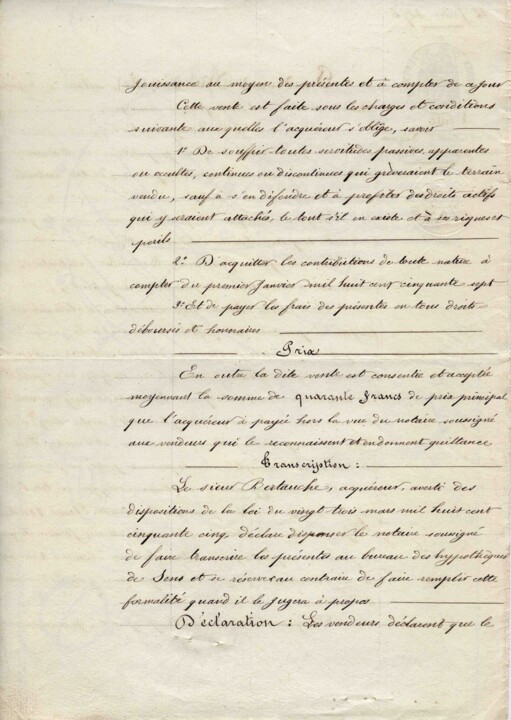 Jouissance au moyen des présentes et à compter de ce jour
Cette vente est faite sous les charges et conditions
suivante aux quelles l'acquéreur s'oblige, savoir
1° De souffrir toutes servitudes passives, apparentes
ou occultes, continues ou discontinues qui grèveraient le terrain
vendu, sauf à s'en défendre et à profiter des droits actifs
qui y seraient attachés, le tout s'il en existe et à ses risques et
perils
2° D'acquitter les contributions de toute nature à
compter du premier Janvier mil huit cent cinquante sept
3° Et de payer les frais des présentes en tous droits
déboursés et honoraires
Prix
En outre la dite vente est consentie et acceptée
moyennant la somme de quarante francs de prix principal
que l'acquéreur à payée hors la vue du notaire soussigné
aux vendeurs qui le reconnaissent et en donnent quittance
Transcription :
Le sieur Bertauche, acquéreur, averti des
dispositions de la loi du vingt-trois mars mil huit cent
cinquante cinq, déclare dispenser le notaire soussigné
de faire transcrire les présentes au bureau des hypothèques
de Sens et se réserve au contraire de faire remplir cette
formalité quand il le jugera à propos
Déclaration : Les vendeurs déclarent que le